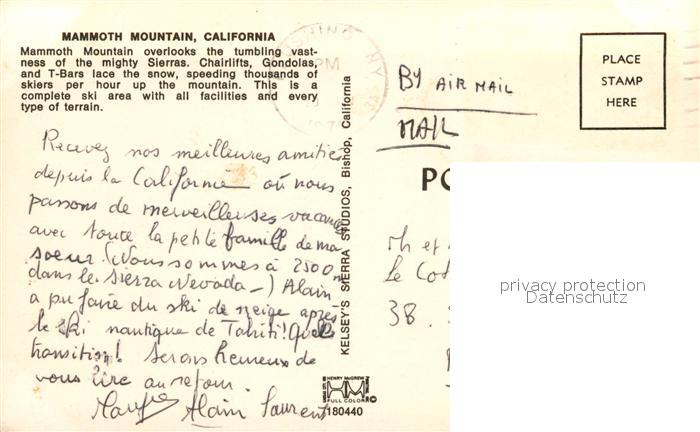 MAMMOTH MOUNTAIN, CALIFORNIA
Mammoth Mountain overlooks the tumbling vast-
ness of the mighty Sierras. Chairlifts, Gondolas,
and T-Bars lace the snow, speeding thousands of
skiers per hour up the mountain. This is a
complete ski area with all facilities and every
type of terrain.
Recevez nos meilleures amitiés
depuis la Californie où nous
passons de merveilleuses vacances
avec toute la petite famille de ma
soeur. (Nous sommes à 2500m
dans le Sierra Nevada-) Alain
a pu faire du ski de neige après
le ski nautique de Tahiti! Quelle
transition! Serons heureux de
vous lire au retour.
Alain Laurent
KELSEY'S SIERRA STUDIOS, Bishop, California
HENRY McGREW
HM
FULL COLOR
180440
PM
BY AIR MAIL
MAIL
PLACE
STAMP
HERE
PO
et
Le
38.
privacy protection
Datenschutz